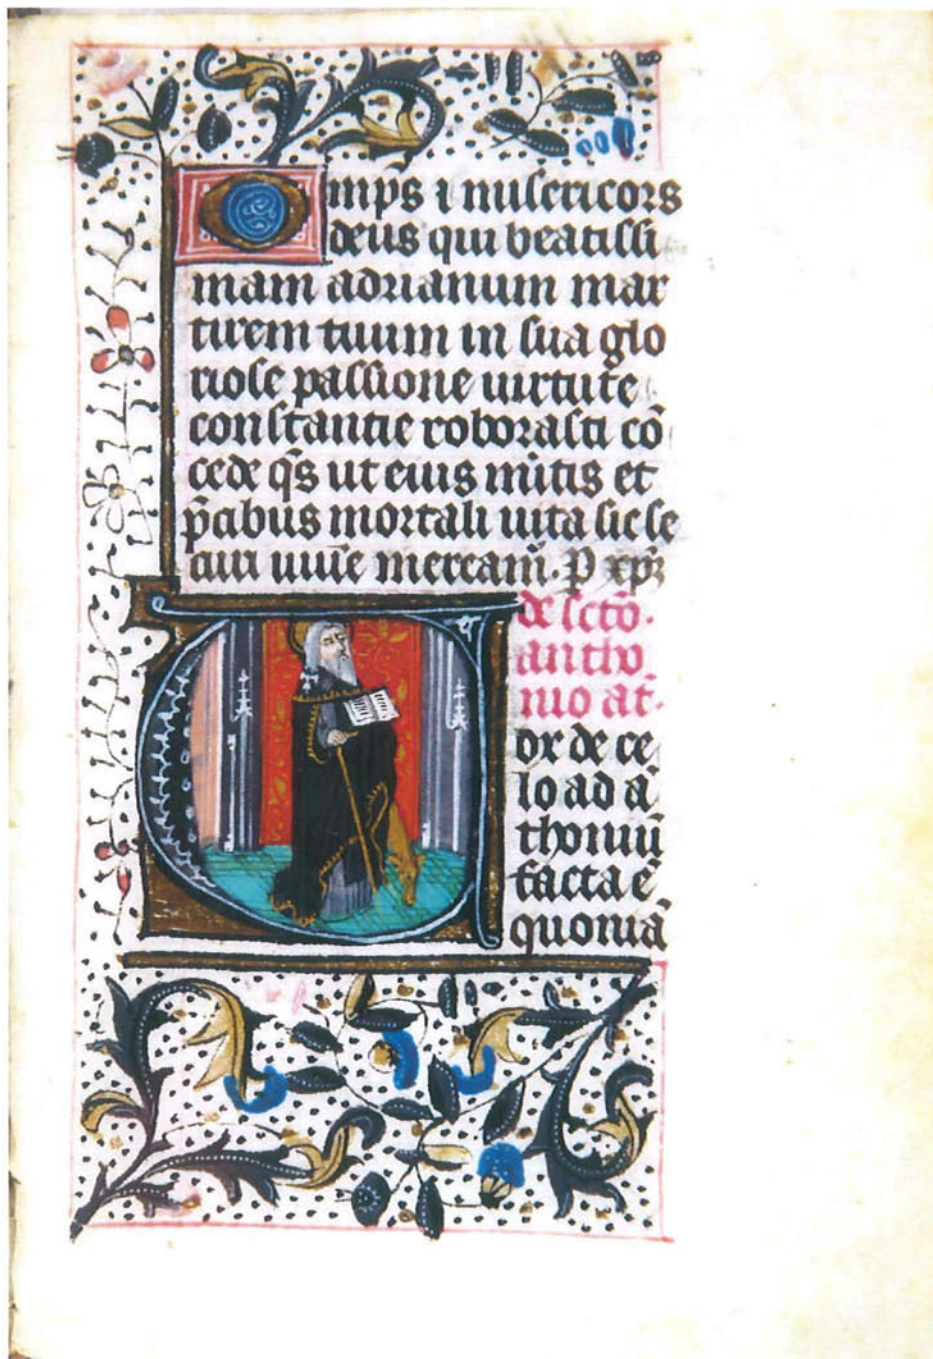 Omp̄s ⁊ misericors
deus qui beatissi
mam adrianum mar
tirem tuum in sua glo
riose passione uirtute
constantie roborasti cō
cede q̄s ut eius m̄itis et
p̄cibus mortali uita sic se
curi uiu̅e mercam̄. P xp̄ꝫ
de scto.
antho
nio at̄.
Vox de ce
lo ad ā
thoniū
facta ē
quoniā